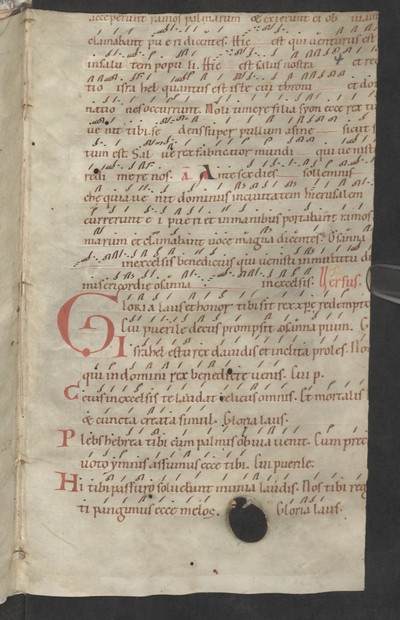 acceperunt ramos palmarum & exierunt ei ob uiam
clamabant pu e ri dicentes. Hic est qui uenturus est
insalu tem popu li. Hic est salus nostra et re
tio isra hel quantus est iste cui throni et do
natio nes occurrunt. Noli timere filia syon ecce rex tu
ue nit tibi se dens super pullum asine sicut s
tum est Sal ue rex fabricator mundi qui ue nist
redi mere nos. a Ante sex dies sollemnis
che quia ue nit dominus in ciuitatem hierusalem
currerunt e i pueri et in manibus portabant ramos
marum et clamabant uoce magna dicentes. Osanna
in excelsis benedictus qui uenisti in multitudi
misericordie osanna in excelsis. Versus.
Gloria laus et honor tibi sit rex xpe redempto
Cui puerile decus prompsit osanna pium. G
Israhel es tu rex dauidis et inclita proles. No
qui in domini rex benedicte uenis. Cui p.
Cetus in excelsis te laudat celicus omnis. Et mortalis
& cuncta creata simul. Gloria laus.
Plebs hebrea tibi cum palmis obuia uenit. Cum prec
uoto ymnis assumus ecce tibi. Cui puerile.
Hi tibi passuro soluebunt munia laudis. Nos tibi reg
ti pangimus ecce melos. Gloria laus.